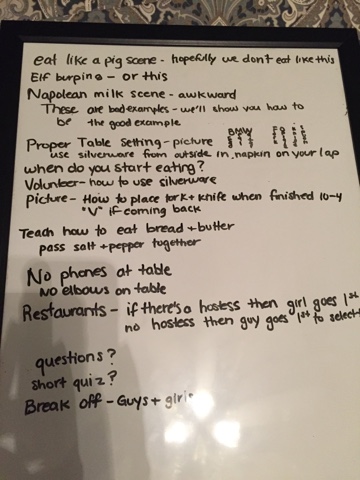 eat like a pig scene - hopefully we don't eat like this
Elf burping - or this
Napolean milk scene - awkward
These are bad examples - we'll show you how to
be the good example
Proper Table Setting - picture BMW
use silverware from outside in, napkin on your lap
when do you start eating?
Volunteer - how to use silverware
picture - How to place fork + knife when finished 10-4
"V" if coming back
Teach how to eat bread + butter
pass salt + pepper together
No phones at table
No elbows on table
Restaurants - if there's a hostess then girl goes 1st
no hostess then guy goes 1st to select
questions?
short quiz?
Break off - Guys + girls